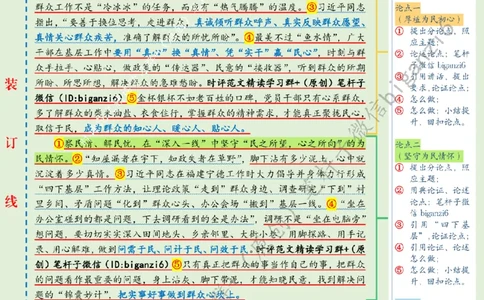 群众工作不是“冷冰冰”的任务，而应有“热气腾腾”的温度。③习近平同志
指出，“要善于换位思考，走进群众，真诚倾听群众呼声、真实反映群众愿望、
真情关心群众疾苦，准确了解群众的所忧所盼”。④最美不过“鱼水情”，广大
干部在基层工作中要用“真心”换“真情”、凭“实干”赢“民心”，时刻与群
众手挽手、心贴心，做政策的“传达器”、民意的“接收器”，听到群众的所期
所盼、所思所想，解决群众的急难愁盼。时评范文精读学习群+(原创)笔杆子
微信（ID:biganzi6）⑤金杯银杯不如老百姓的口碑，党员干部只有心系群众，
多了解群众的柴米油盐、衣食住行，掌握群众的精神需求，才能真正聚民心，
取信于民，成为群众的知心人、暖心人、贴心人。
①察民谙、解民忧，在“深入一线”中坚守“民之所望，心之所向”的为
民情怀。②“知屋漏者在宇下，知政失者在草野”，脚下沾有多少泥土，心中就
沉淀着多少真情。③习近平同志在福建宁德工作时大力倡导并身体力行形成
“四下基层”工作方法，让理论政策“走到”群众身边、调查研究“下到”村
里乡间、矛盾问题“化到”群众心头、办公会场“搬到”基层一线。④“坐在
办公室碰到的都是问题，下去调研看到的全是办法”，调研不是“坐在电脑旁”
想问题，要切切实实深入田间地头、乡亲邻里、大街小巷，用脚探路、用手记
录、用心解难，做到问需于民、问计于民、问效于民。时评范文精读学习群+(原
创）笔杆子微信（ID:biganzi6）⑤只有真正把群众的事当作自己的事，把群众
的问题看作最重要的问题，身上沾灰、脚下带泥，才能知晓民意，找到解决问
题的“锦囊妙计”，把实事好事做到群众心坎上。
装
订
线
论点一
（厚植为民初心）
① 提出分论点，照
应主题；
② 论述论点；笔杆
子微信 biganzi6
③ 引用讲话，提出
要求，论证论点；
④ 怎么做；
⑤ 怎么做，小结提
升，回扣论点。
论点二
（坚守为民情怀）
① 提出分论点，照
应主题；
② 用典论证，论述
论点；笔杆子微
信 biganzi6
③ 引用“四下基
层”，论证论点；
④ 引用论证，论述
怎么做；
⑤ 怎么做，小结提
升，回扣论点。